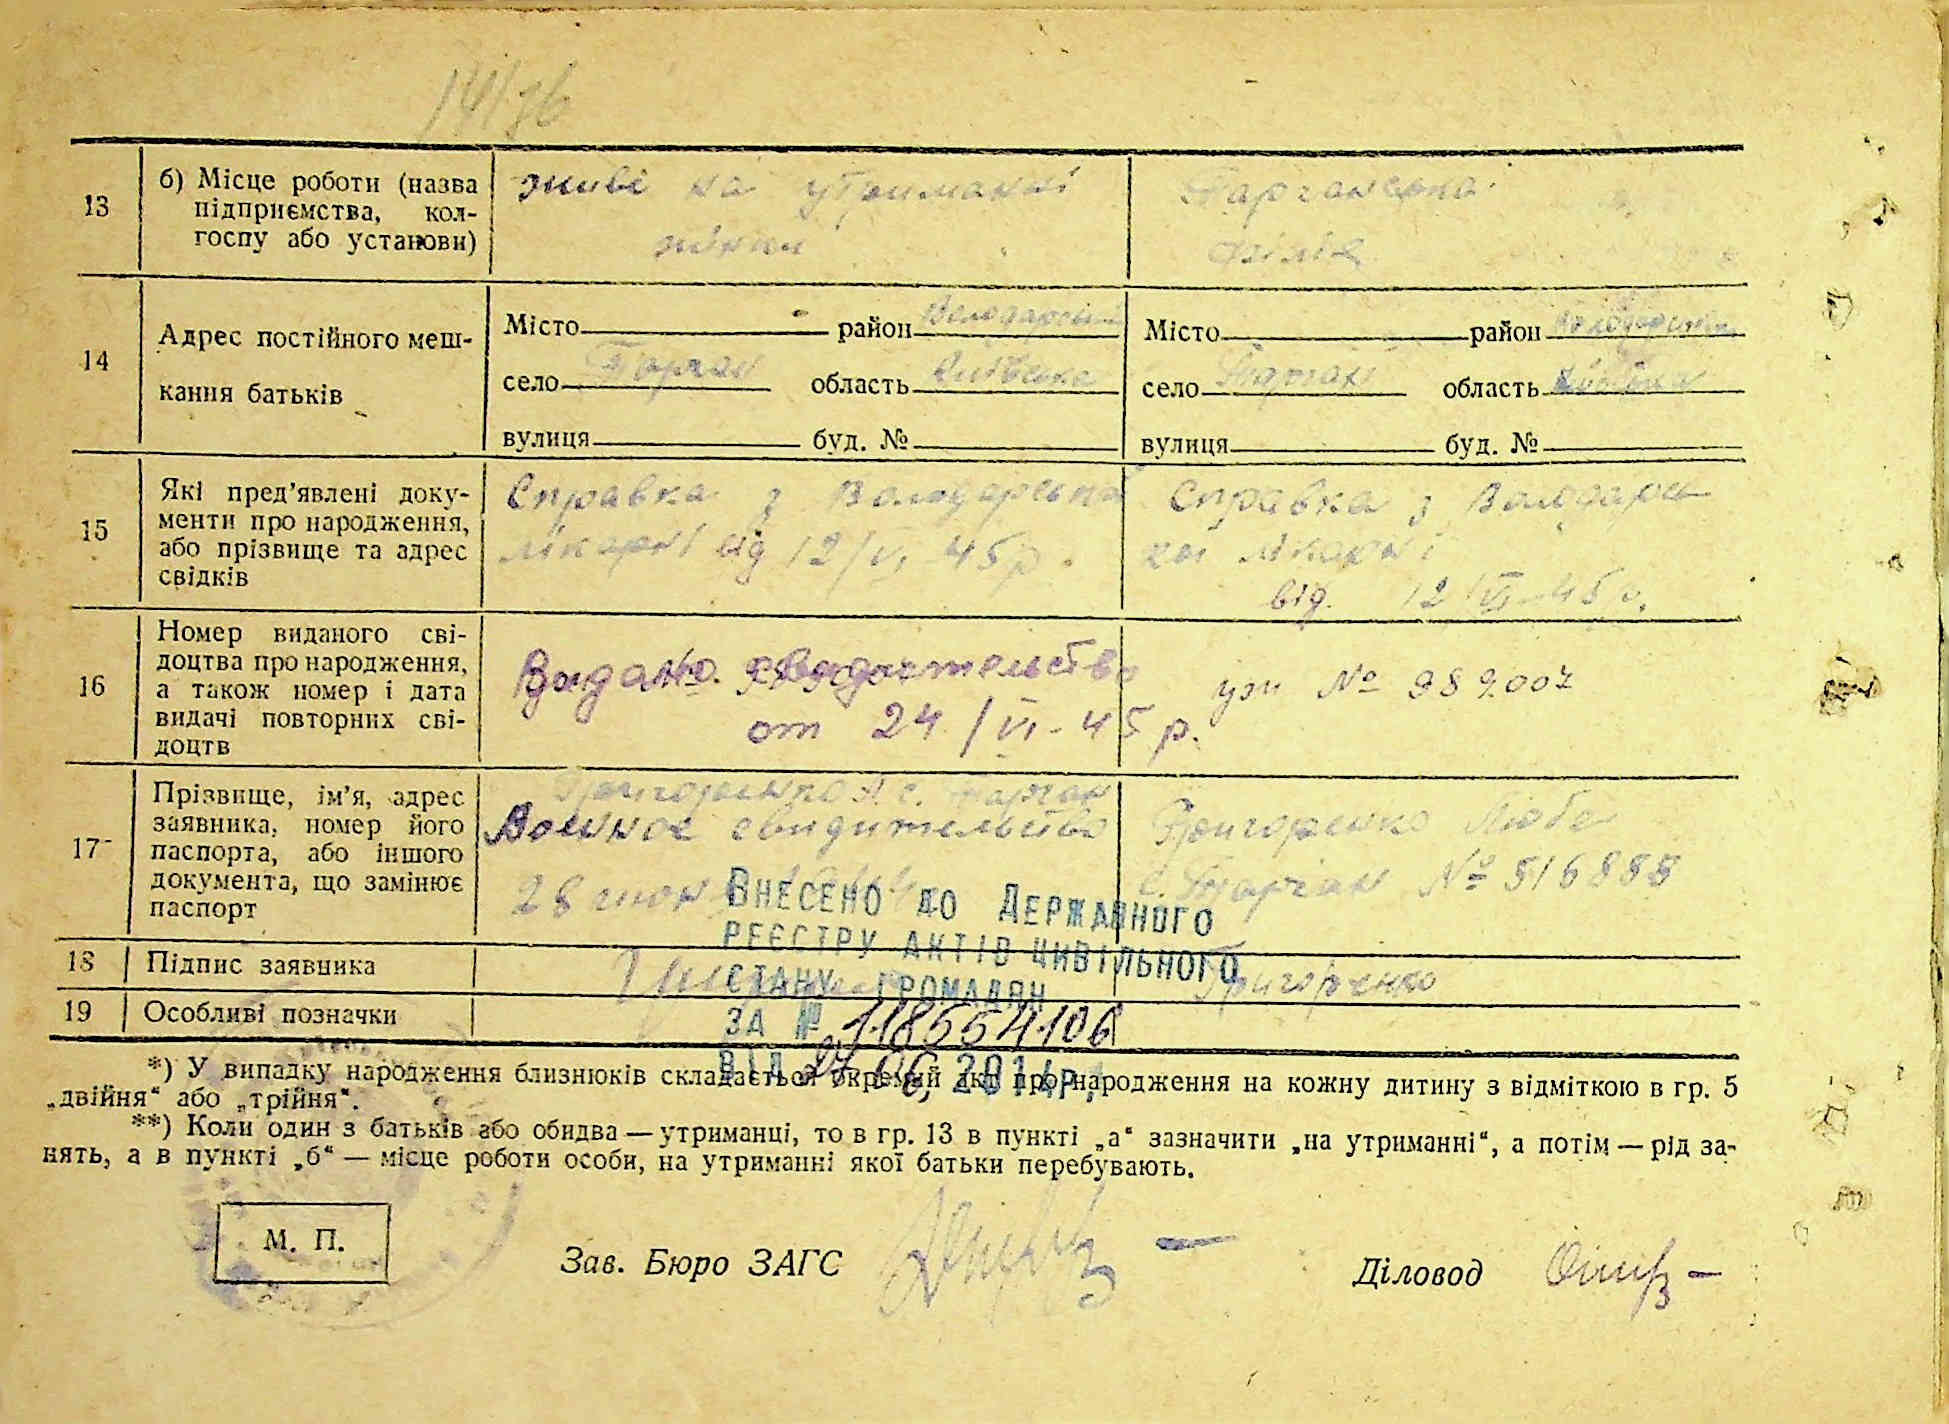 13
б) Місце роботи (назва
підприємства, кол-
госпу або установи)
живе на утриманні
Тарганська
14
Адрес постійного меш-
кання батьків
Місто район Володарський
село Торган область Київська
вулиця буд. №
Місто район
село Тарган область Київська
вулиця буд. №
15
Які пред’явлені доку-
менти про народження,
або прізвище та адрес
свідків
Справка з Володарської
лікарні від 12/VI 45 р.
Справка з Володарсь
кої лікарні
від. 12/VI-45 р.
16
Номер виданого сві-
доцтва про народження,
а також номер і дата
видачі повторних сві-
доцтв
Видано свидительство
от 24/VI-45 р.
№ 989007
17
Прізвище, ім’я, адрес
заявника, номер його
паспорта, або іншого
документа, що замінює
паспорт
Григоренко А. с. Тарган
Воинное свидительство
28 июн
Григоренко Люба
с. Тарган № 516888
18
Підпис заявника
Григоренко
19
Особливі позначки
Внесено до Державного
реєстру актів цивільного
стану громадян
за № 118554106
від 27.06.2014р.
*) У випадку народження близнюків складається окремий акт про народження на кожну дитину з відміткою в гр. 5
„двійня“ або „трійня“.
**) Коли один з батьків або обидва — утриманці, то в гр. 13 в пункті „а“ зазначити „на утриманні“, а потім — рід за-
нять, а в пункті „б“ — місце роботи особи, на утриманні якої батьки перебувають.
М. П.
Зав. Бюро ЗАГС
Діловод